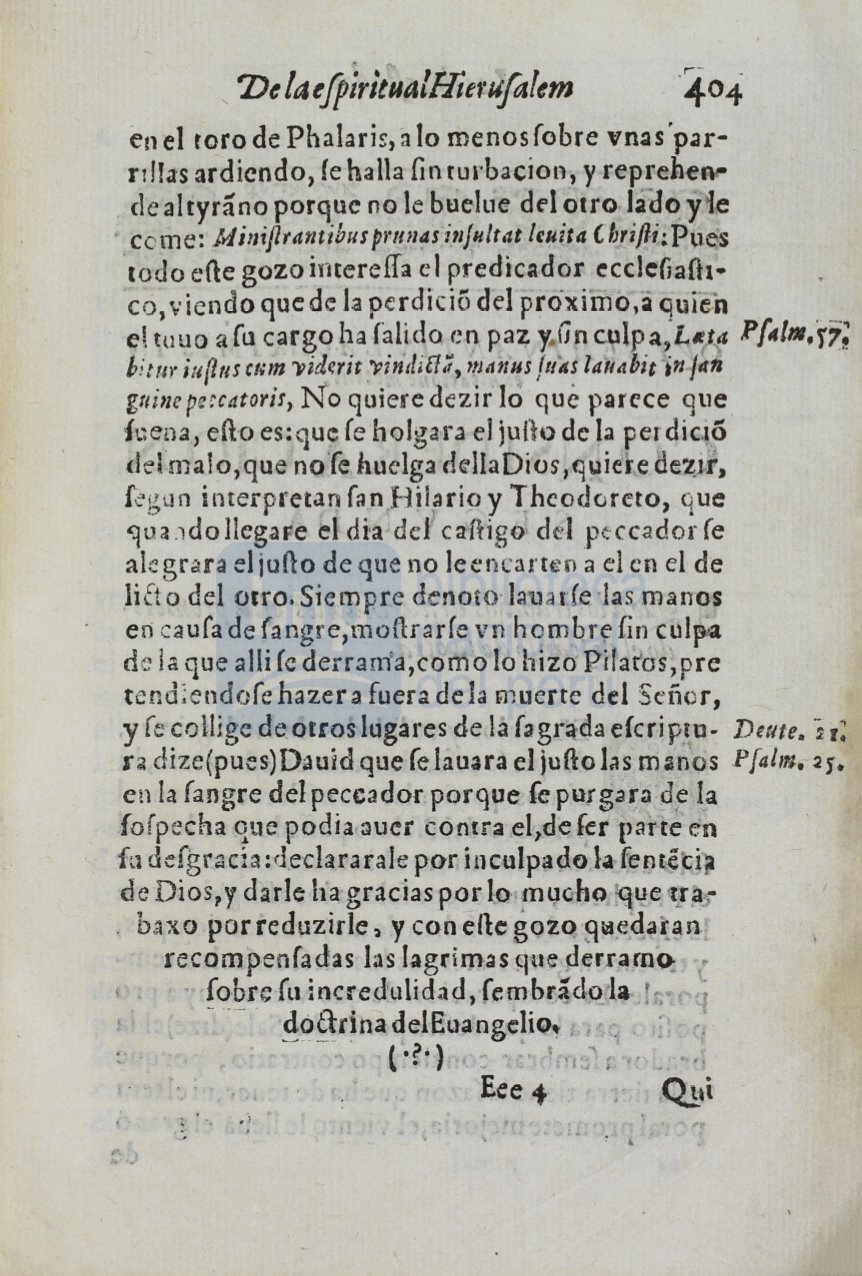 De la eſpiritual Hieruſalem 404
en el toro de Phalaris, a lo menos ſobre vnas par-
rillas ardiendo, ſe halla ſin turbacion, y reprehen-
de al tyrãno porque no le buelue del otro lado y le
come: Miniſtrantibus prunas inſultat leuita Chriſti: Pues
todo eſte gozo intereſſa el predicador eccleſiaſti-
co, viendo que de la perdiciõ del proximo, a quien
el tuuo a ſu cargo ha ſalido en paz y ſin culpa, Læta
Pſalm. 57.
bitur iuſtus cum viderit vindictã, manus ſuas lauabit in ſan
guine peccatoris, No quiere dezir lo que parece que
ſuena, eſto es: que ſe holgara el juſto de la perdiciõ
del malo, que no ſe huelga della Dios, quiere dezir,
ſegun interpretan ſan Hilario y Theodoreto, que
quando llegare el dia del caſtigo del peccador ſe
alegrara el juſto de que no le encarten a el en el de
licto del otro. Siempre denoto lauarſe las manos
en cauſa de ſangre, moſtrarſe vn hombre ſin culpa
de la que alli ſe derrama, como lo hizo Pilatos, pre
tendiendoſe hazer a fuera de la muerte del Señor,
y ſe collige de otros lugares de la ſagrada eſcriptu-
Deute. 21.
ra dize (pues) Dauid que ſe lauara el juſto las manos
Pſalm. 25.
en la ſangre del peccador porque ſe purgara de la
ſoſpecha que podia auer contra el, de ſer parte en
ſu deſgracia: declararale por inculpado la ſentẽcia
de Dios, y darle ha gracias por lo mucho que tra-
baxo por reduzirle, y con eſte gozo quedaran
recompenſadas las lagrimas que derramo
ſobre ſu incredulidad, ſembrãdo la
doctrina del Euangelio.
(·?·)
Eee 4 Qui